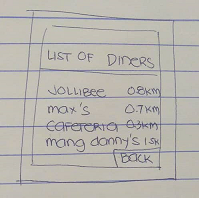 LIST OF DINERS
JOLLIBEE 0.8km
max's 0.7km
CAFETERIA 0.3km
mang danny's 1.5k
BACK